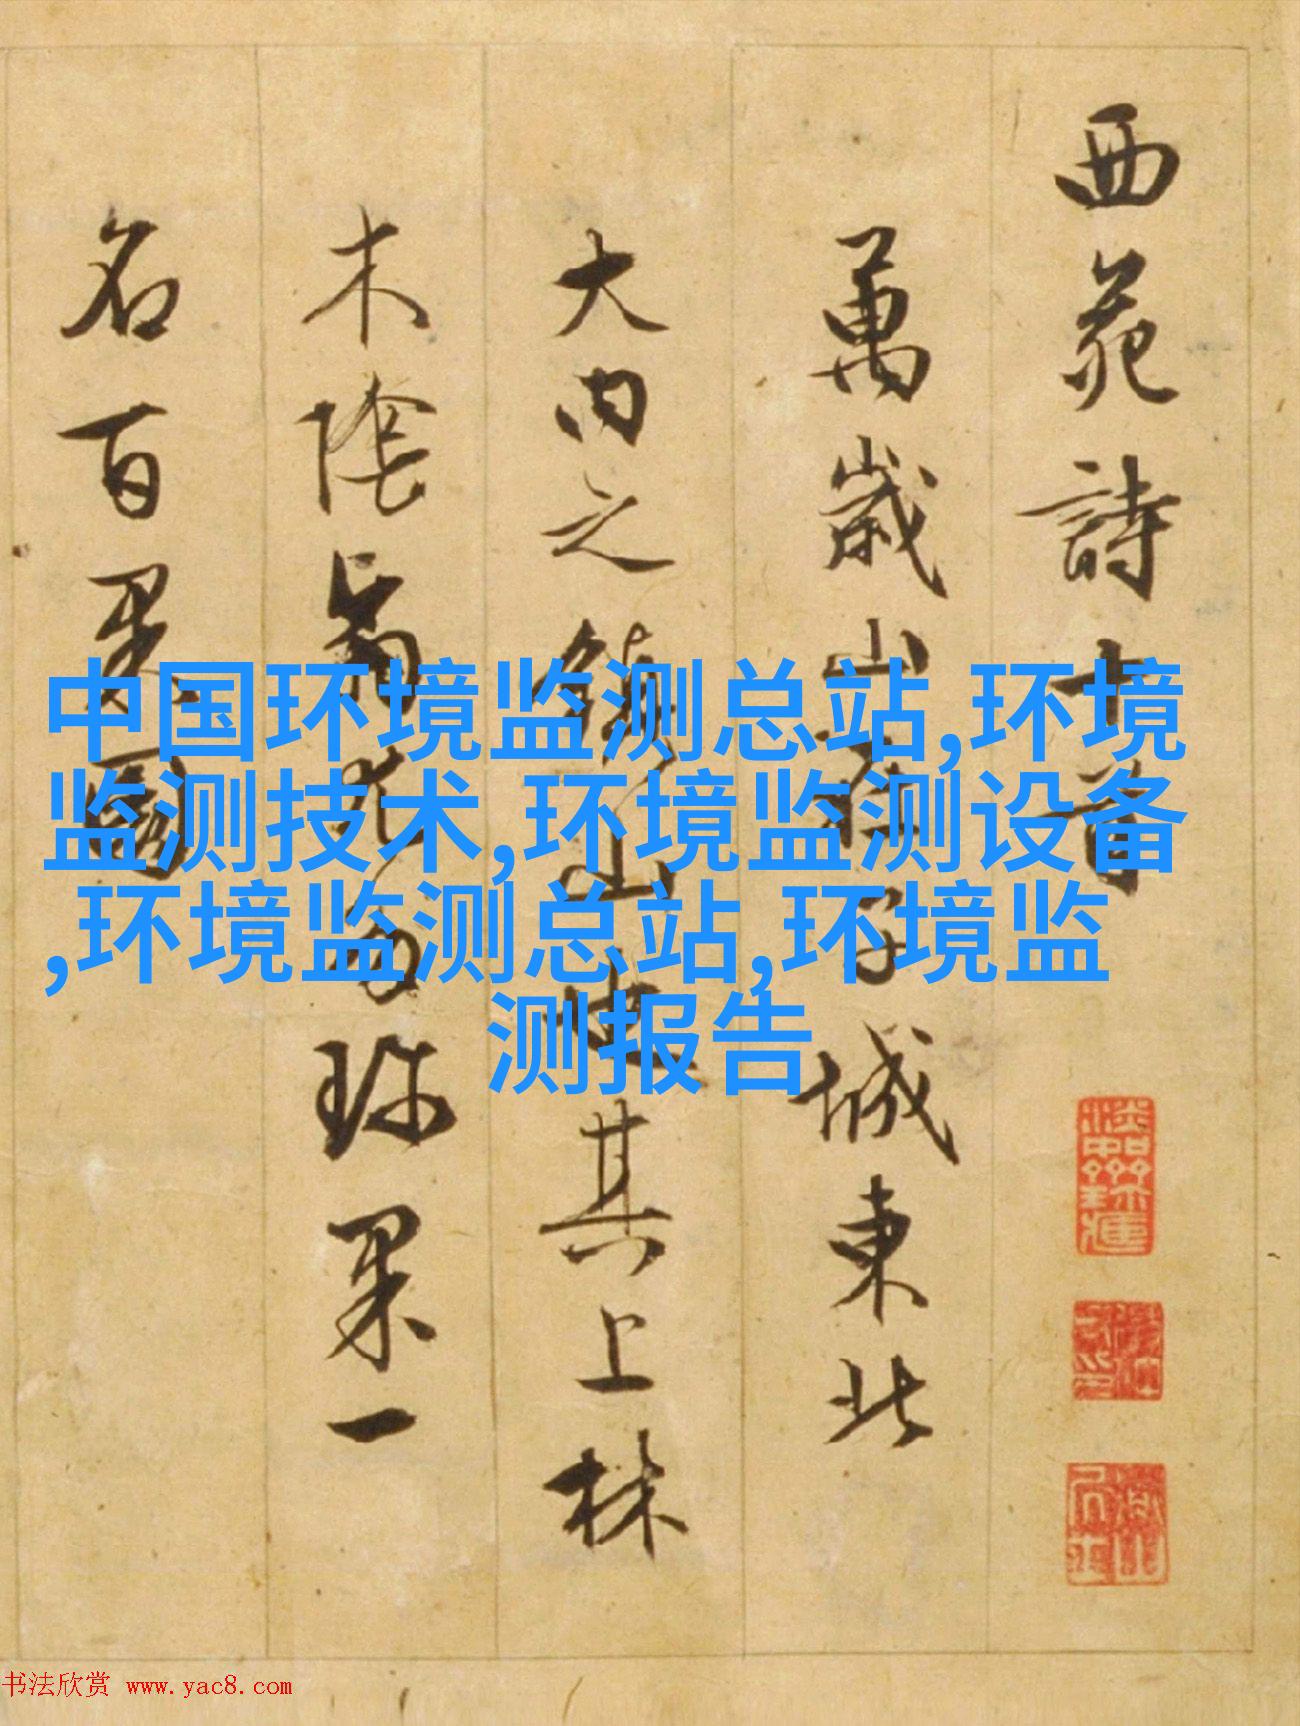 西苑詩十首
萬歲山在子城東北
大内之鎮山也其上林
木陰翳尤多珍果一
名百果園
中国环境监测总站,环境
监测技术,环境监测设备
,环境监测总站,环境监
测报告
书法欣赏 www.yac8.com